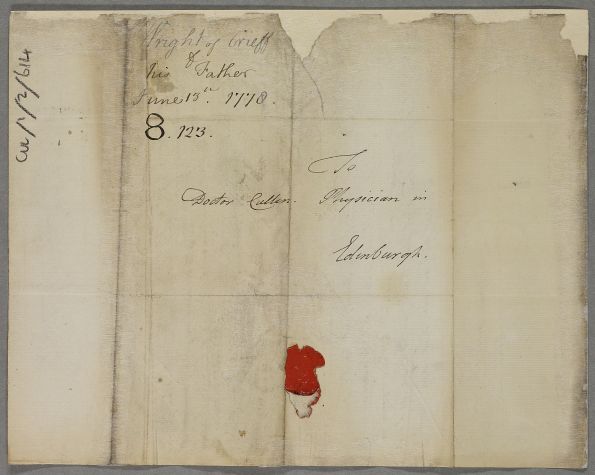 Wright of Crieff
of
his Father
June 13th. 1778.
8. 123.
To
Doctor Cullen. Physician in
Edinburgh.
CUL/1/2/614